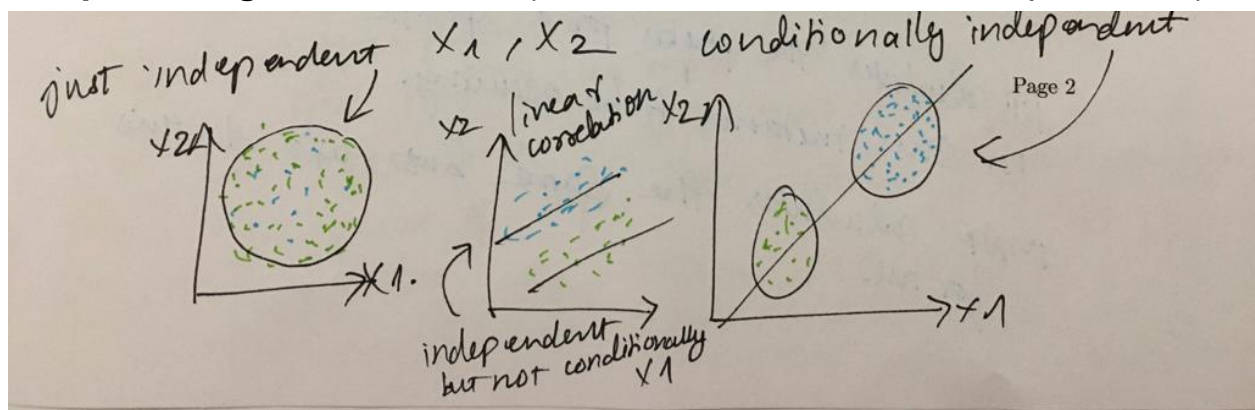 just independent
X1, X2
conditionally independent
Page 2
X2
X1.
X2
linear
correlation
independent
but not conditionally
X1
X2
X1